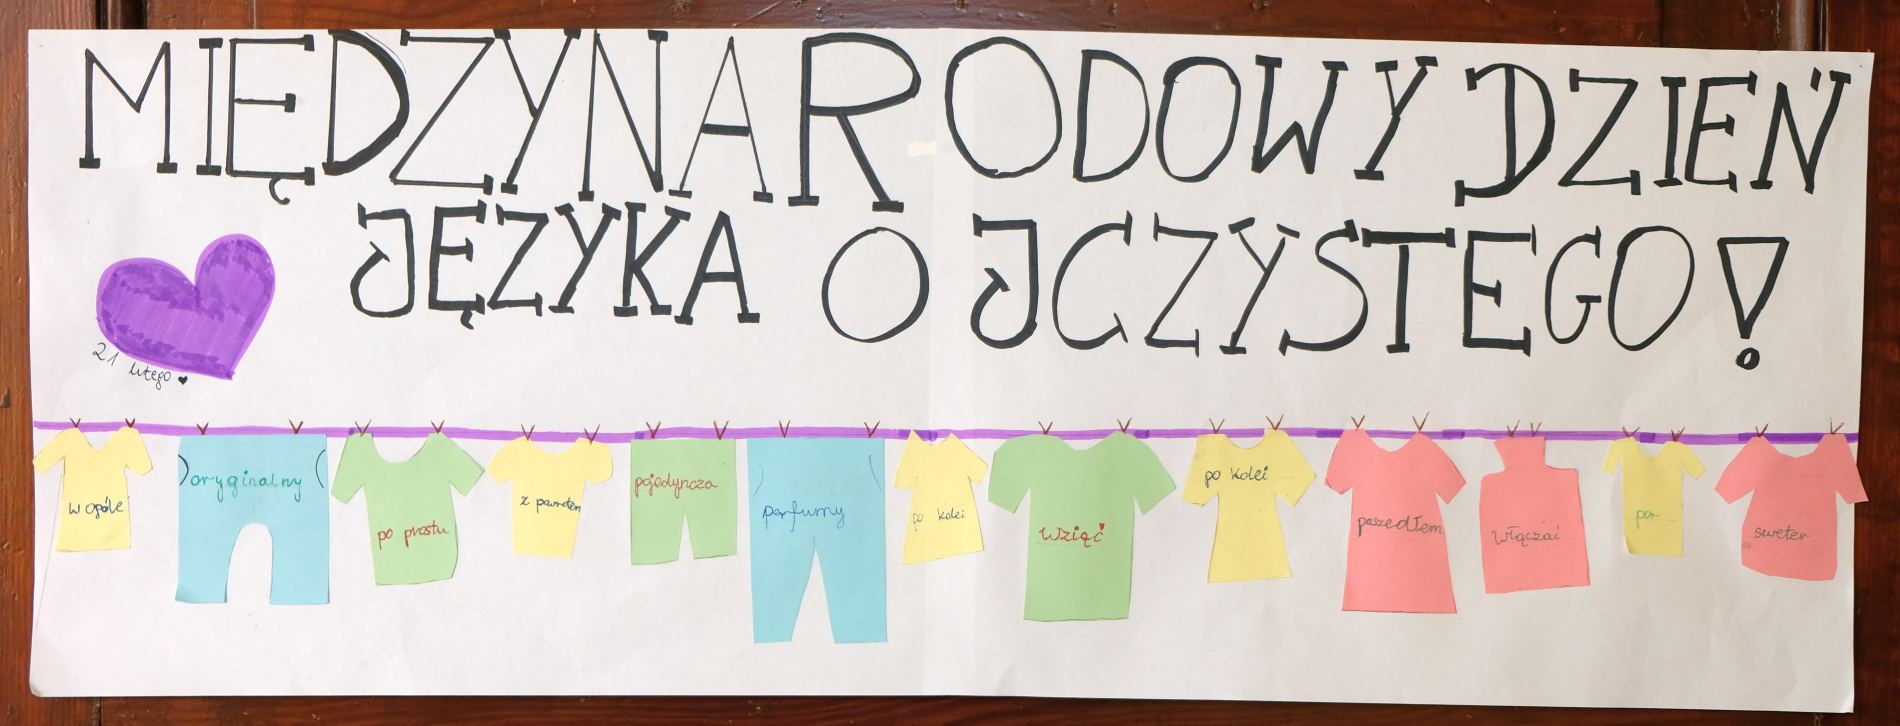 MIĘDZYNARODOWY DZIEŃ
JĘZYKA OJCZYSTEGO!
21 lutego
w ogóle
oryginalny
po prostu
z powrotem
pojedyncza
perfumy
po kolei
wziąć
po kolei
poszedłem
włączać
por
sweter